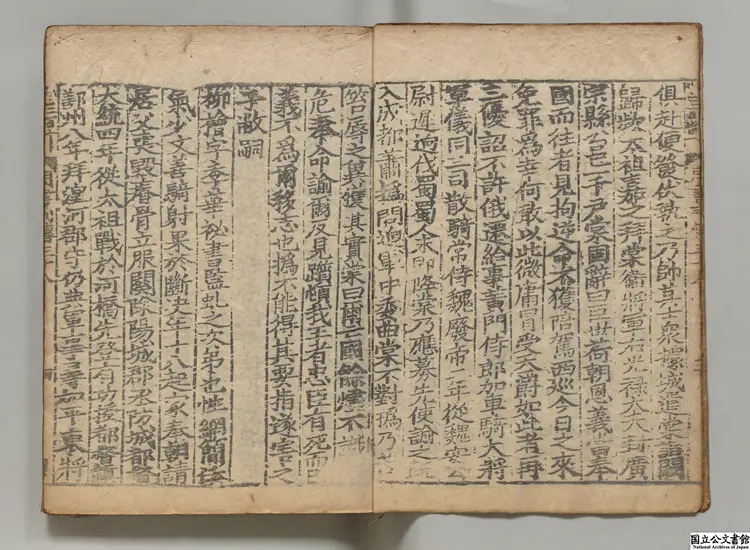 俱赴便發伏執之乃帥其士衆據城遣棠詣闕
歸款太祖嘉之拜棠衛將軍右光祿大夫封廣
宗縣公邑一千戶棠固辭曰臣世荷朝恩義當奉
國而往者見拘逆命不獲陪駕西巡今日之來
免罪爲幸何敢以此微庸冒受天爵如此者再
三優詔不許俄遷給事黃門侍郎加車騎大將
軍儀同三司散騎常侍魏廢帝二年從魏安公
尉遲迥伐蜀蜀人未即降棠乃應募先使諭之既
入成都蕭撝問迥軍中委曲棠不對撝乃苦
笞辱之冀獲其實棠曰爾亡國餘燼不識
危奉命諭爾反見躓頓我王者忠臣有死而已
義不爲爾移志也撝不能得其要指遂害之
子敞嗣
柳檜字季華祕書監虬之次弟也性剛簡任
氣少文善騎射果於斷決年十八起家奉朝請
居父喪毀瘠骨立服闋除陽城郡丞防城都督
大統四年從太祖戰於河橋先登有功授都督鎮
鄯州八年拜湟河郡守仍典軍事尋加平東將
国立公文書館
National Archives of Japan